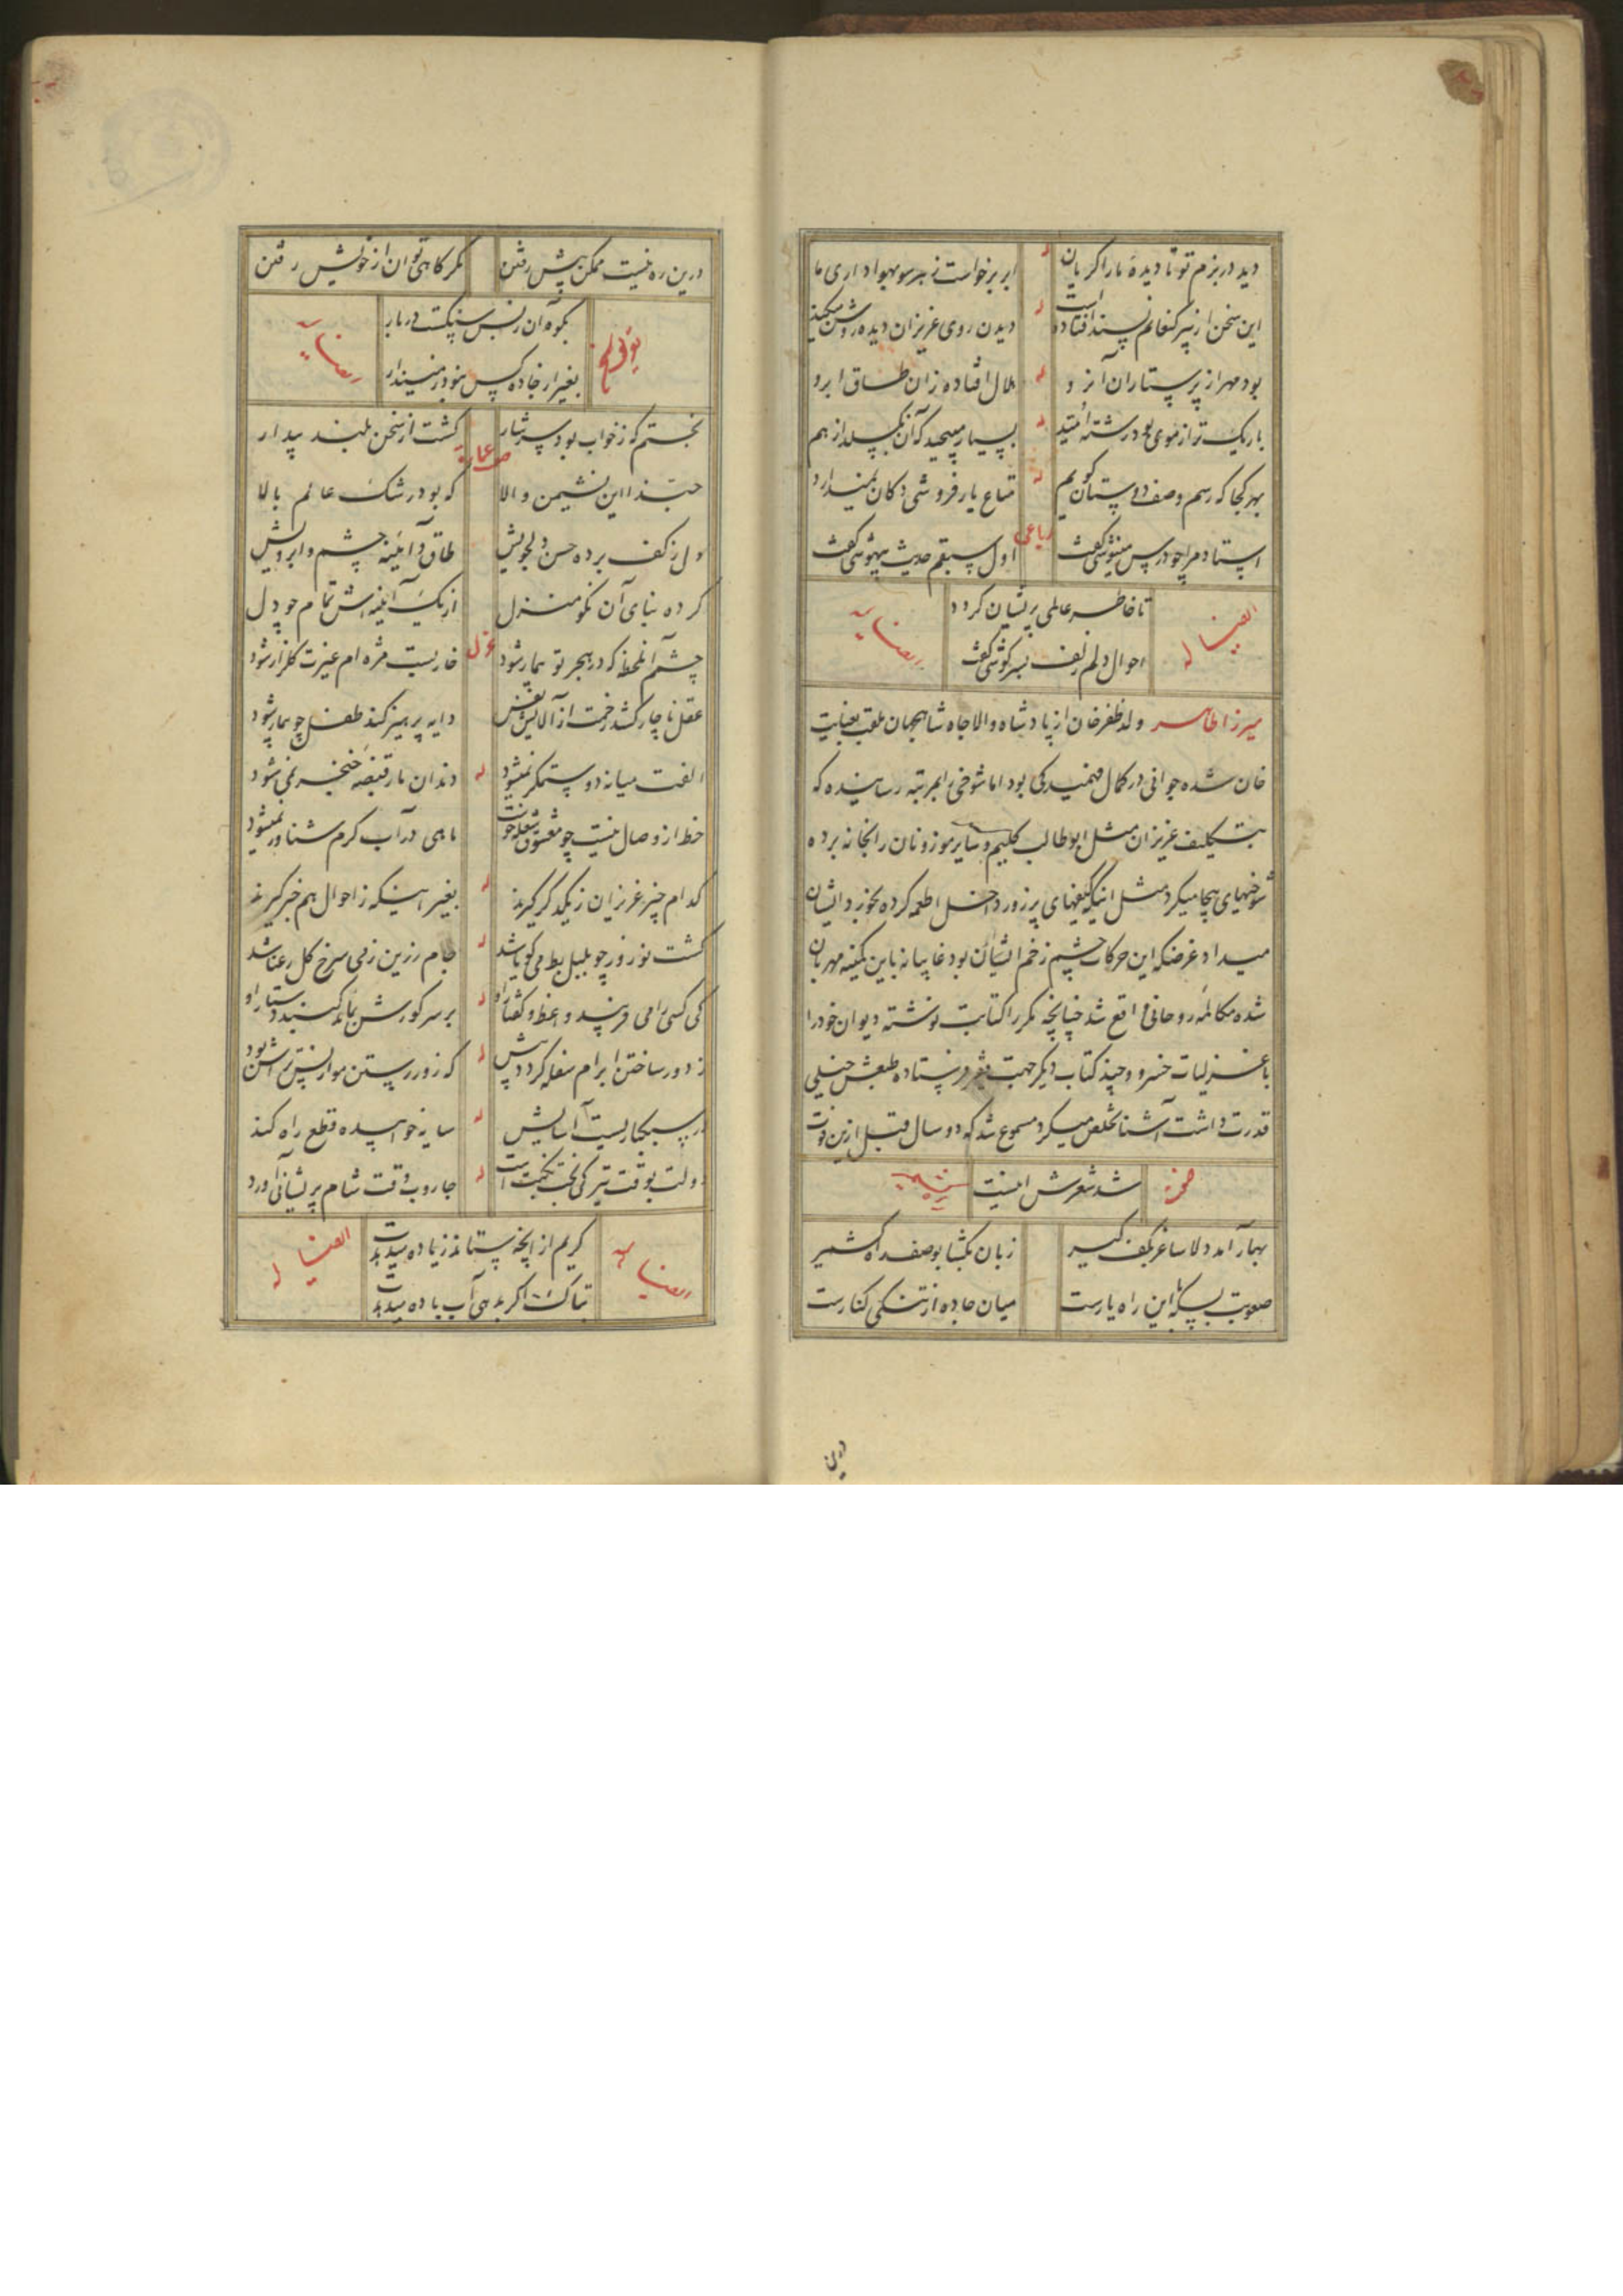 دید در بزم تو تا دیدهٔ ما را گریان
ابر برخواست ز هر سو بهواداری ما
له
این سخن از پیر کنعانم پسند افتاده است
دیدن روی عزیزان دیده روشن میکند
له
بود مهر از پرستاران آن رو
هلال افتاده زان طاق ابرو
له
باریک تر از موی بود رشته امید
بسیار مپیچید که آن نگسلد از هم
له
بهر کجا که رسم وصف دوستان گویم
متاع یار فروشی دکان نمیدارد
رباعی
استاد مرا چو درس مینوشی گفت
اول سبقم حدیث بیهوشی گفت
ایضا له
تا خاطر عالمی پریشان گردد
احوال دلم زلف بسرگوشی گفت
ایضا له
میرزا طاهر ولد ظفرخان از پادشاه والاجاه شاهجهان ملقب بعنایت
خان شده جوانی در کمال فهمیدگی بود اما شوخی را بمرتبه رسانیده که
بتکلیف عزیزان مثل ابوطالب کلیم و سایر موزونان را بخانه برده
شوخیهای بیجا میکرد مثل اینکه کیفهای پرزور داخل اطعمه کرده بخورد ایشان
میداد غرضکه این حرکات چشم زخم ایشان بود غایبانه باین کمینه مهربان
شده مکالمه روحانی واقع شد چنانچه مکرر کتابت نوشته دیوان خود را
با غزلیات خسرو و چند کتاب دیگر جهت فقیر فرستاده طبعش خیلی
قدرت داشت آشنا تخلص میکرد مسموع شد که دو سال قبل ازین فوت
شد شعرش اینست
بهار آمد دلا ساغر بکف گیر
زبان بگشا بوصف راه کشمیر
صعوبت بسکه با این راه یارست
میان جاده از تنگی کنارست
درین ره نیست ممکن پیش رفتن
مگر گاهی توان از خویش رفتن
بکوه آن
ایضا له
بغیر از جاده کس
بختم که ز خواب بود سرشار
گشت از سخن بلند بیدار
حبذا این نشیمن والا
که بود رشک عالم بالا
دل ز کف برده حسن دلجویش
طاق و آینه چشم و ابرویش
کرده بنای آن نکو منزل
از یک آینه اش تمام چو دل
غزل
چشم آن لحظه که در هجر تو بیمار شود
خار بست مژه ام غیرت گلزار شود
عقل ناچار کشد رخت از آلایش نفس
دایه پرهیز کند طفل چو بیمار شود
له
الفت میانه دو ستمگر نمیشود
دندان مار قبضه خنجر نمی شود
حظ از وصال نیست چو معشوق شعله خوست
ماهی در آب گرم شناور نمیشود
له
کدام چیز عزیزان ز یکدگر گیرند
بغیر اینکه ز احوال هم خبر گیرند
له
گشت نوروز چو بلبل بط می گویا شد
جام زرین ز می سرخ گل رعنا شد
له
کی کسی را می فریبد واعظ و گفتار او
بر سر گورش بماند گنبد دستار او
له
ز دور ساختن ابرام سفله گردد بیش
که زور رستن مو از پس تراشش بود
له
در سبکباریست آسایش
سایه خوابیده قطع راه کند
له
دولت بوقت تیرگی بخت نکبت است
جاروب وقت شام پریشانی آورد
ایضا له
کریم از آنچه ستاند زیاده میدهدت
بتاک اگر بدهی آب باده میدهدت
ایضا له